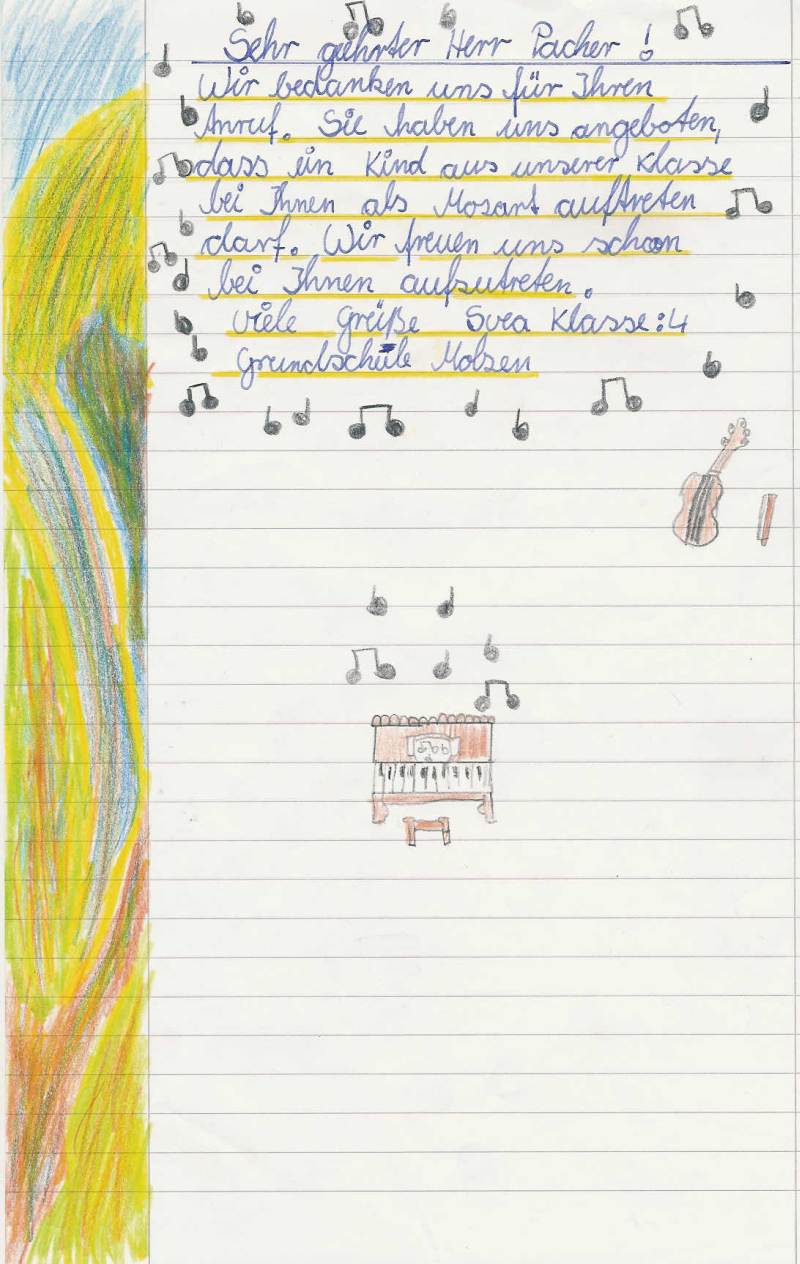 Sehr geehrter Herr Pacher!
Wir bedanken uns für Ihren
Anruf. Sie haben uns angeboten,
dass ein Kind aus unserer Klasse
bei Ihnen als Mozart auftreten
darf. Wir freuen uns schon
bei Ihnen aufzutreten.
Viele Grüße Svea Klasse:4
Grundschule Molzen